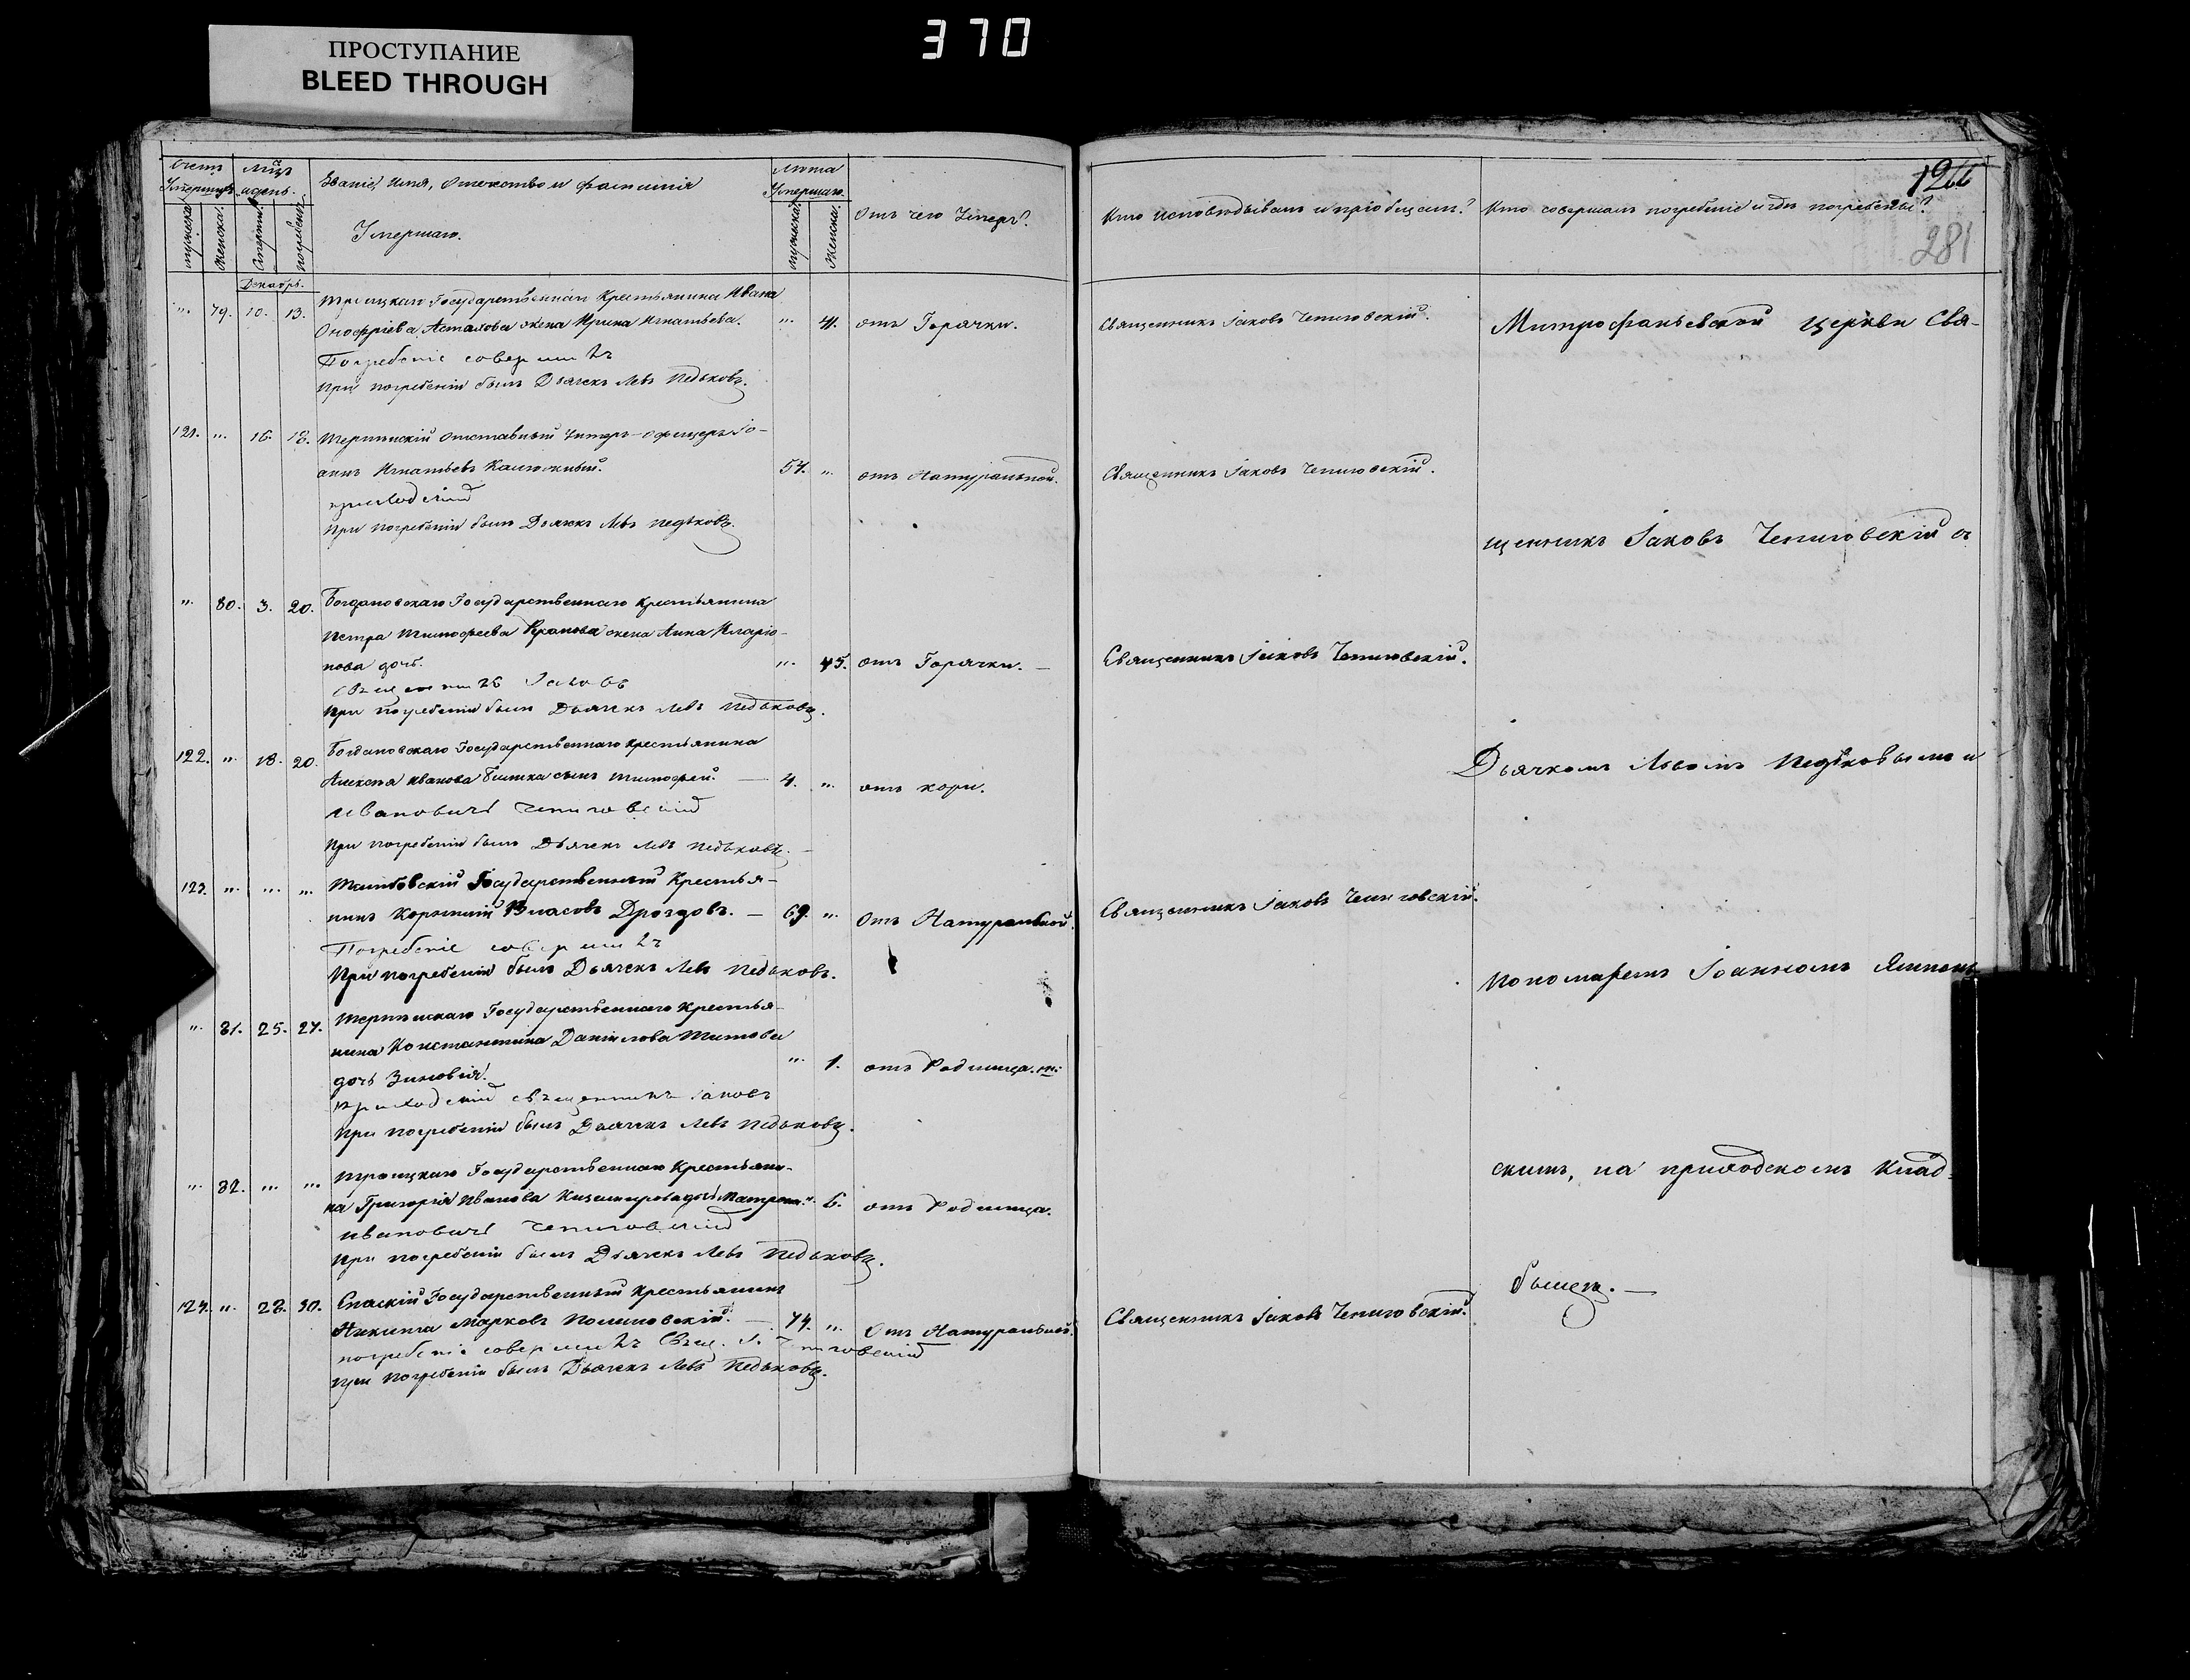 370
ПРОСТУПАНИЕ
BLEED THROUGH
Счетъ Умершихъ
Мѣсяцъ и день.
Званіе, Имя, Отечество и фамилія
Умершаго.
Лѣта Умершаго.
Отъ чего Умеръ?
мужска. Женска. Смерти. погребенія.
мужска. Женска.
Декабрь.
". 79. 10. 13. Троицкаго Государственнаго Крестьянина Ивана
Онофріева Асталова жена Ирина Игнатьева. ". 41. отъ Горячки.
Погребеніе совершилъ
При погребеніи былъ Дьячекъ Левъ Педьковъ.
121. ". 16. 18. отставный Унтеръ-Офицеръ Іо-
аннъ Игнатьевъ Калюжный. 57. ". отъ Натуральной.
приходскій
При погребеніи былъ Дьячекъ Левъ Педьковъ.
". 80. 3. 20. Богдановскаго Государственнаго Крестьянина
Петра Тимофеева жена Анна Иларіо-
нова дочь. ". 45. отъ Горячки. —
Священникъ Іаковъ
При погребеніи былъ Дьячекъ Левъ Педьковъ.
122. ". 18. 20. Богдановскаго Государственнаго крестьянина
Алексѣя Иванова сынъ Тимофей. — 4. ". отъ кори.
Ивановичъ Чепиговскій
При погребеніи былъ Дьячекъ Левъ Педьковъ. —
123. ". ". ". Государственный Крестья-
нинъ Корнилій Власовъ Дроздовъ. — 69. ". Отъ Натуральной.
Погребеніе совершилъ
При погребеніи былъ Дьячекъ Левъ Педьковъ.
". 81. 25. 27. Государственнаго Крестья-
нина Константина Данилова Титова
дочь Зиновія. ". 1. отъ Родимца.
Приходскій священникъ Іаковъ
При погребеніи былъ Дьячекъ Левъ Педьковъ.
". 82. ". ". Троицкаго Государственнаго Крестьяни-
на Григорія Иванова дочь Матрона. ". 6. отъ Родимца.
Ивановичъ Чепиговскій
При погребеніи былъ Дьячекъ Левъ Педьковъ.
124. ". 28. 30. Спаскій Государственный Крестьянинъ
Никита Марковъ — 74. ". Отъ Натуральной.
погребеніе совершилъ Свящ. І. Чепиговскій
При погребеніи былъ Дьячекъ Левъ Педьковъ.
281
Кто исповѣдывалъ и пріобщалъ?
Кто совершалъ погребеніе и гдѣ погребены?
Священникъ Іаковъ Чепиговскій.
Священникъ Іаковъ Чепиговскій.
Священникъ Іаковъ Чепиговскій.
Священникъ Іаковъ Чепиговскій.
Священникъ Іаковъ Чепиговскій.
Митрофаньевской церкви Свя-
щенникъ Іаковъ Чепиговскій съ
Дьячкомъ Львомъ Педьковымъ и
пономаремъ Іоанномъ Ямполь
скимъ, на приходскомъ Клад-
бищѣ. —